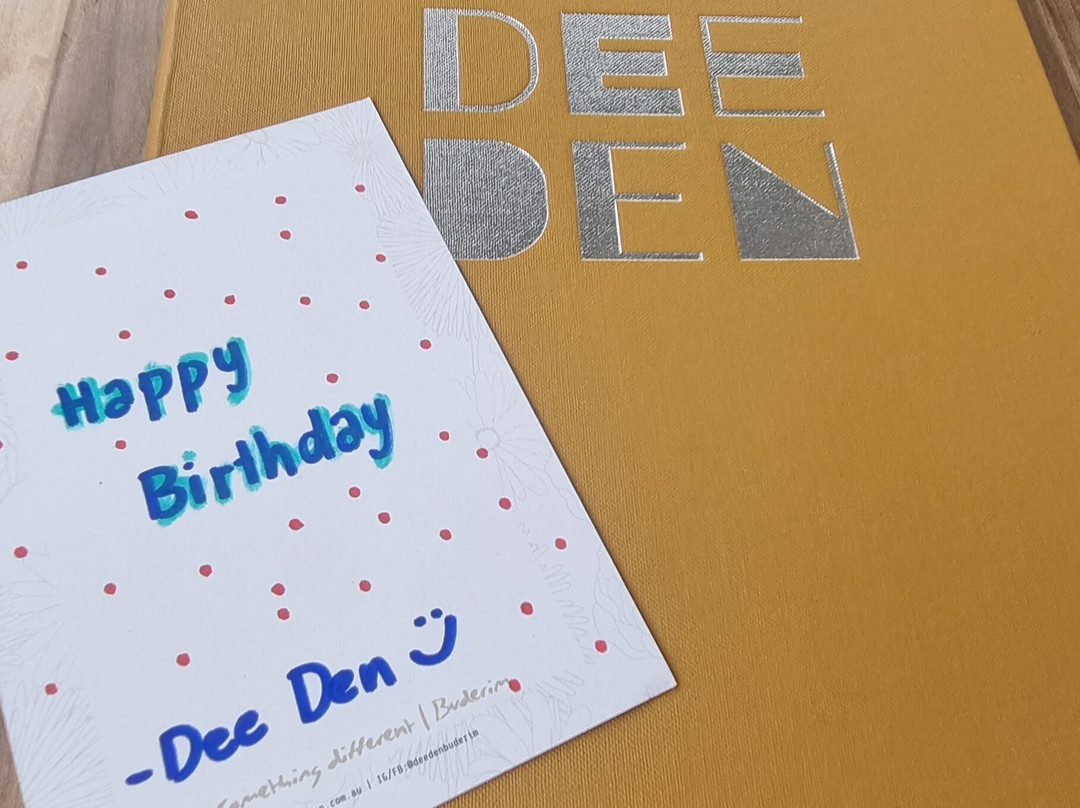 DEE
DEN
Happy
Birthday
-Dee Den
something different | Buderim
.com.au | IG/FB:@deedenbuderim